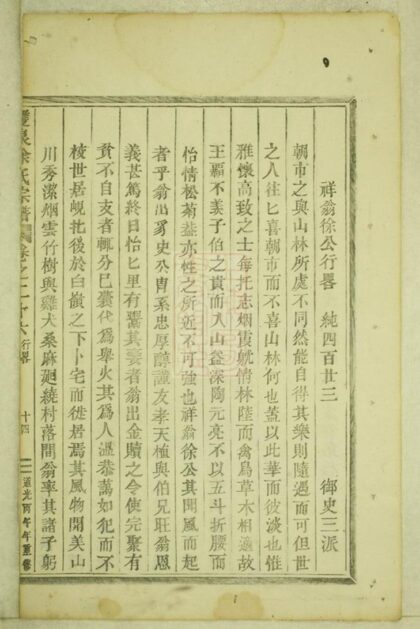 祥翁徐公行畧 純四百廿三 御史三派
朝市之與山林所處不同然能自得其樂則隨遇而可但世
之人往匕喜朝市而不喜山林何也蓋以此華而彼淡也惟
雅懷高致之士每托志烟霞躭情林陸而禽鳥草木相適故
王覇不羡子伯之貴而入山益深陶元亮不以五斗折腰而
怡情松菊葢亦性之所近不可強也祥翁徐公其聞風而起
者乎翁出芳史公冑系忠厚醇謹友孝天植與伯兄旺翁恩
義甚篤終日怡匕里有鬻其妻者翁出金贖之令使完聚有
貧不自支者輙分已囊代爲舉火其爲人溫恭藹如犯而不
棱世居峴北後於白嶺之下卜宅而徙居焉其風物閒美山
川秀潔烟雲竹樹與雞犬桑麻廻繞村落間翁率其諸子躬
泉徐氏宗譜 卷之二十六 行畧 十四 道光丙午年重修